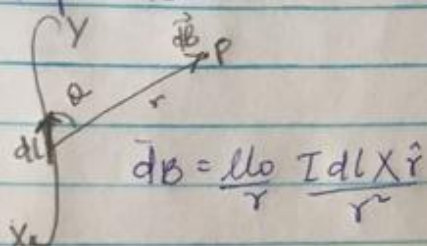 Y
dB P
θ
r
dl
dB = μo/r I dl X r̂/r²
X